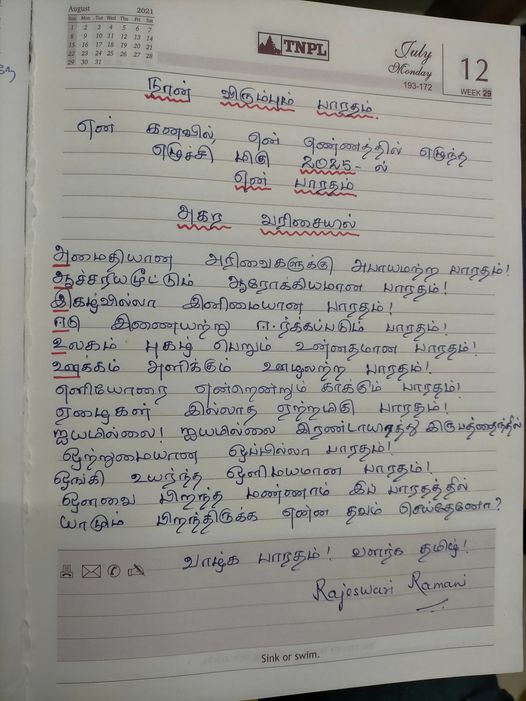 August 2021
Sun Mon Tue Wed Thu Fri Sat
1 2 3 4 5 6 7
8 9 10 11 12 13 14
15 16 17 18 19 20 21
22 23 24 25 26 27 28
29 30 31
TNPL
July
Monday
193-172
12
WEEK 29
நான் விரும்பும் பாரதம்.
என் கனவில், என் எண்ணத்தில் எழுந்த
எழுச்சி மிகு 2025-ல்
என் பாரதம்
அகர வரிசையில்
அமைதியான அரிவைகளுக்கு அபாயமற்ற பாரதம்!
ஆச்சர்யமூட்டும் ஆரோக்கியமான பாரதம்!
இகழ்வில்லா இனிமையான பாரதம்!
ஈடு இணையற்று ஈர்க்கப்படும் பாரதம்!
உலகம் புகழ் பெறும் உன்னதமான பாரதம்!
ஊக்கம் அளிக்கும் ஊழலற்ற பாரதம்!
எளியோரை என்றென்றும் காக்கும் பாரதம்!
ஏழைகள் இல்லாத ஏற்றமிகு பாரதம்!
ஐயமில்லை! ஐயமில்லை இரண்டாயிரத்து இருபத்தைந்தில்
ஒற்றுமையான ஒப்பில்லா பாரதம்!
ஓங்கி உயர்ந்த ஒளிமயமான பாரதம்!
ஔவை பிறந்த மண்ணாம் இப் பாரதத்தில்
யாமும் பிறந்திருக்க என்ன தவம் செய்தேனோ?
வாழ்க பாரதம்! வளர்க தமிழ்!
Rajeswari Raman
Sink or swim.